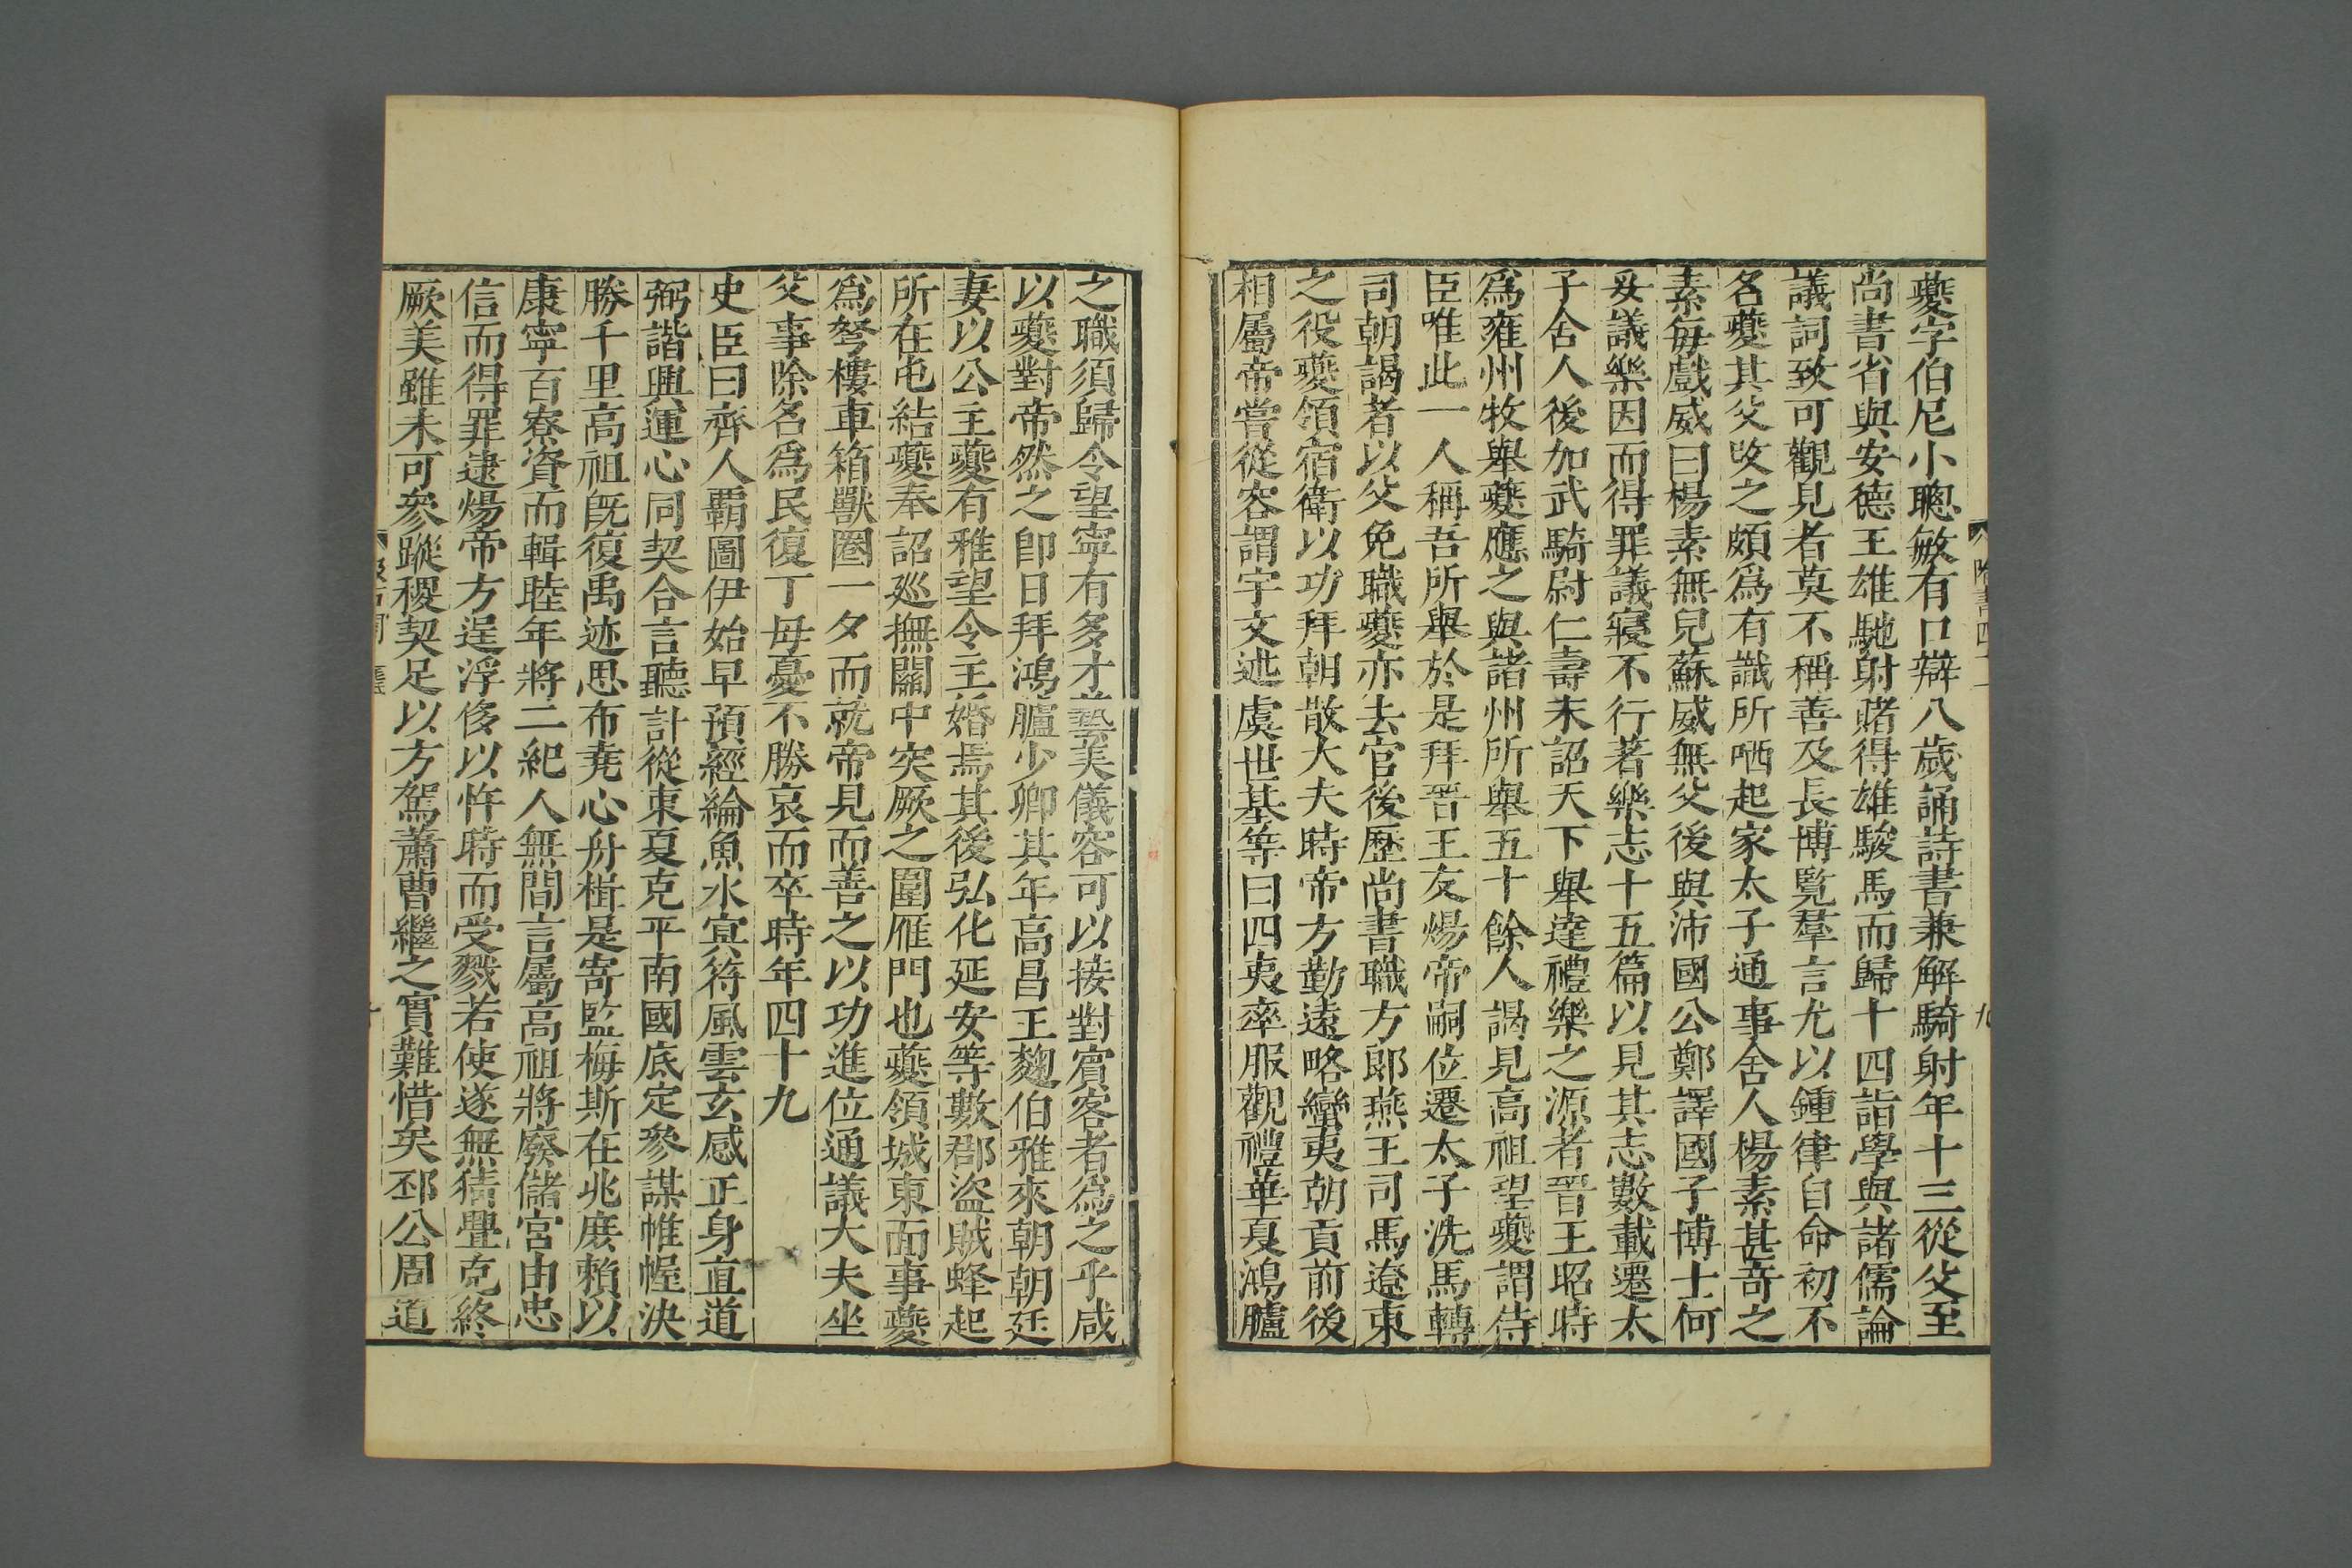 夔字伯尼小聰敏有口辯八歲誦詩書兼解騎射年十三從父至
尚書省與安德王雄馳射賭得雄駿馬而歸十四詣學與諸儒論
議詞致可觀見者莫不稱善及長博覽羣言尤以鍾律自命初不
名夔其父改之頗爲有識所哂起家太子通事舍人楊素甚奇之
素每戲威曰楊素無兒蘇威無父後與沛國公鄭譯國子博士何
妥議樂因而得罪議寢不行著樂志十五篇以見其志數載遷太
子舍人後加武騎尉仁壽末詔天下舉達禮樂之源者晉王昭時
爲雍州牧舉夔應之與諸州所舉五十餘人謁見高祖望夔謂侍
臣唯此一人稱吾所舉於是拜晉王友煬帝嗣位遷太子洗馬轉
司朝謁者以父免職夔亦去官後歷尚書職方郎燕王司馬遼東
之役夔領宿衛以功拜朝散大夫時帝方勤遠略蠻夷朝貢前後
相屬帝嘗從容謂宇文述虞世基等曰四夷率服觀禮華夏鴻臚
之職須歸令望寧有多才藝美儀容可以接對賓客者爲之乎咸
以夔對帝然之卽日拜鴻臚少卿其年高昌王麴伯雅來朝朝廷
妻以公主夔有雅望令主婚焉其後弘化延安等數郡盜賊蜂起
所在屯結夔奉詔巡撫關中突厥之圍雁門也夔領城東面事夔
爲弩樓車箱獸圈一夕而就帝見而善之以功進位通議大夫坐
父事除名爲民復丁母憂不勝哀而卒時年四十九
史臣曰齊人覇圖伊始早預經綸魚水冥符風雲玄感正身直道
弼諧興運心同契合言聽計從東夏克平南國底定參謀帷幄決
勝千里高祖旣復禹迹思布堯心舟楫是寄監梅斯在兆庶賴以
康寧百寮資而輯睦年將二紀人無間言屬高祖將廢儲宮由忠
信而得罪逮煬帝方逞浮侈以忤時而受戮若使遂無猜釁克終
厥美雖未可參蹤稷契足以方駕蕭曹繼之實難惜矣邳公周道